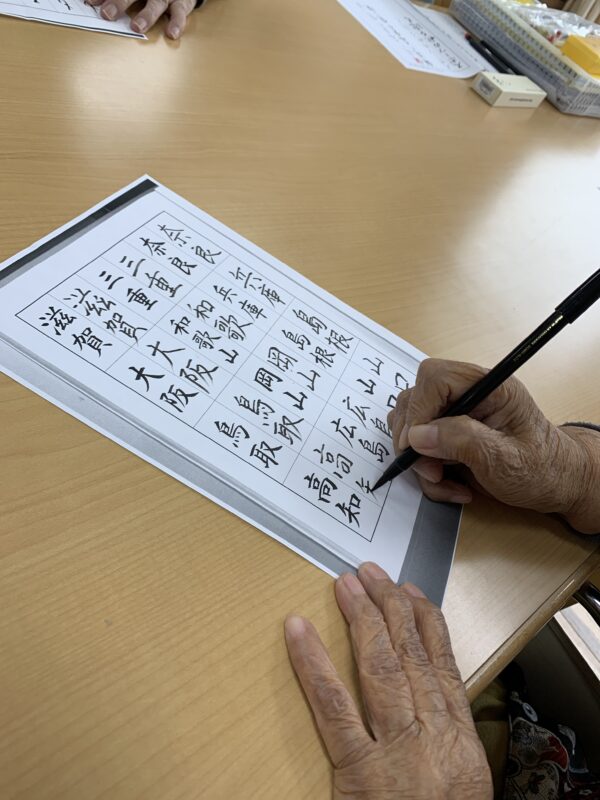 滋賀
滋賀
三重
三重
奈良
奈良
大阪
大阪
和歌山
和歌
兵庫
兵庫
鳥取
鳥取
岡山
岡山
島根
島根
高知
高
広島
広島
山口
山口